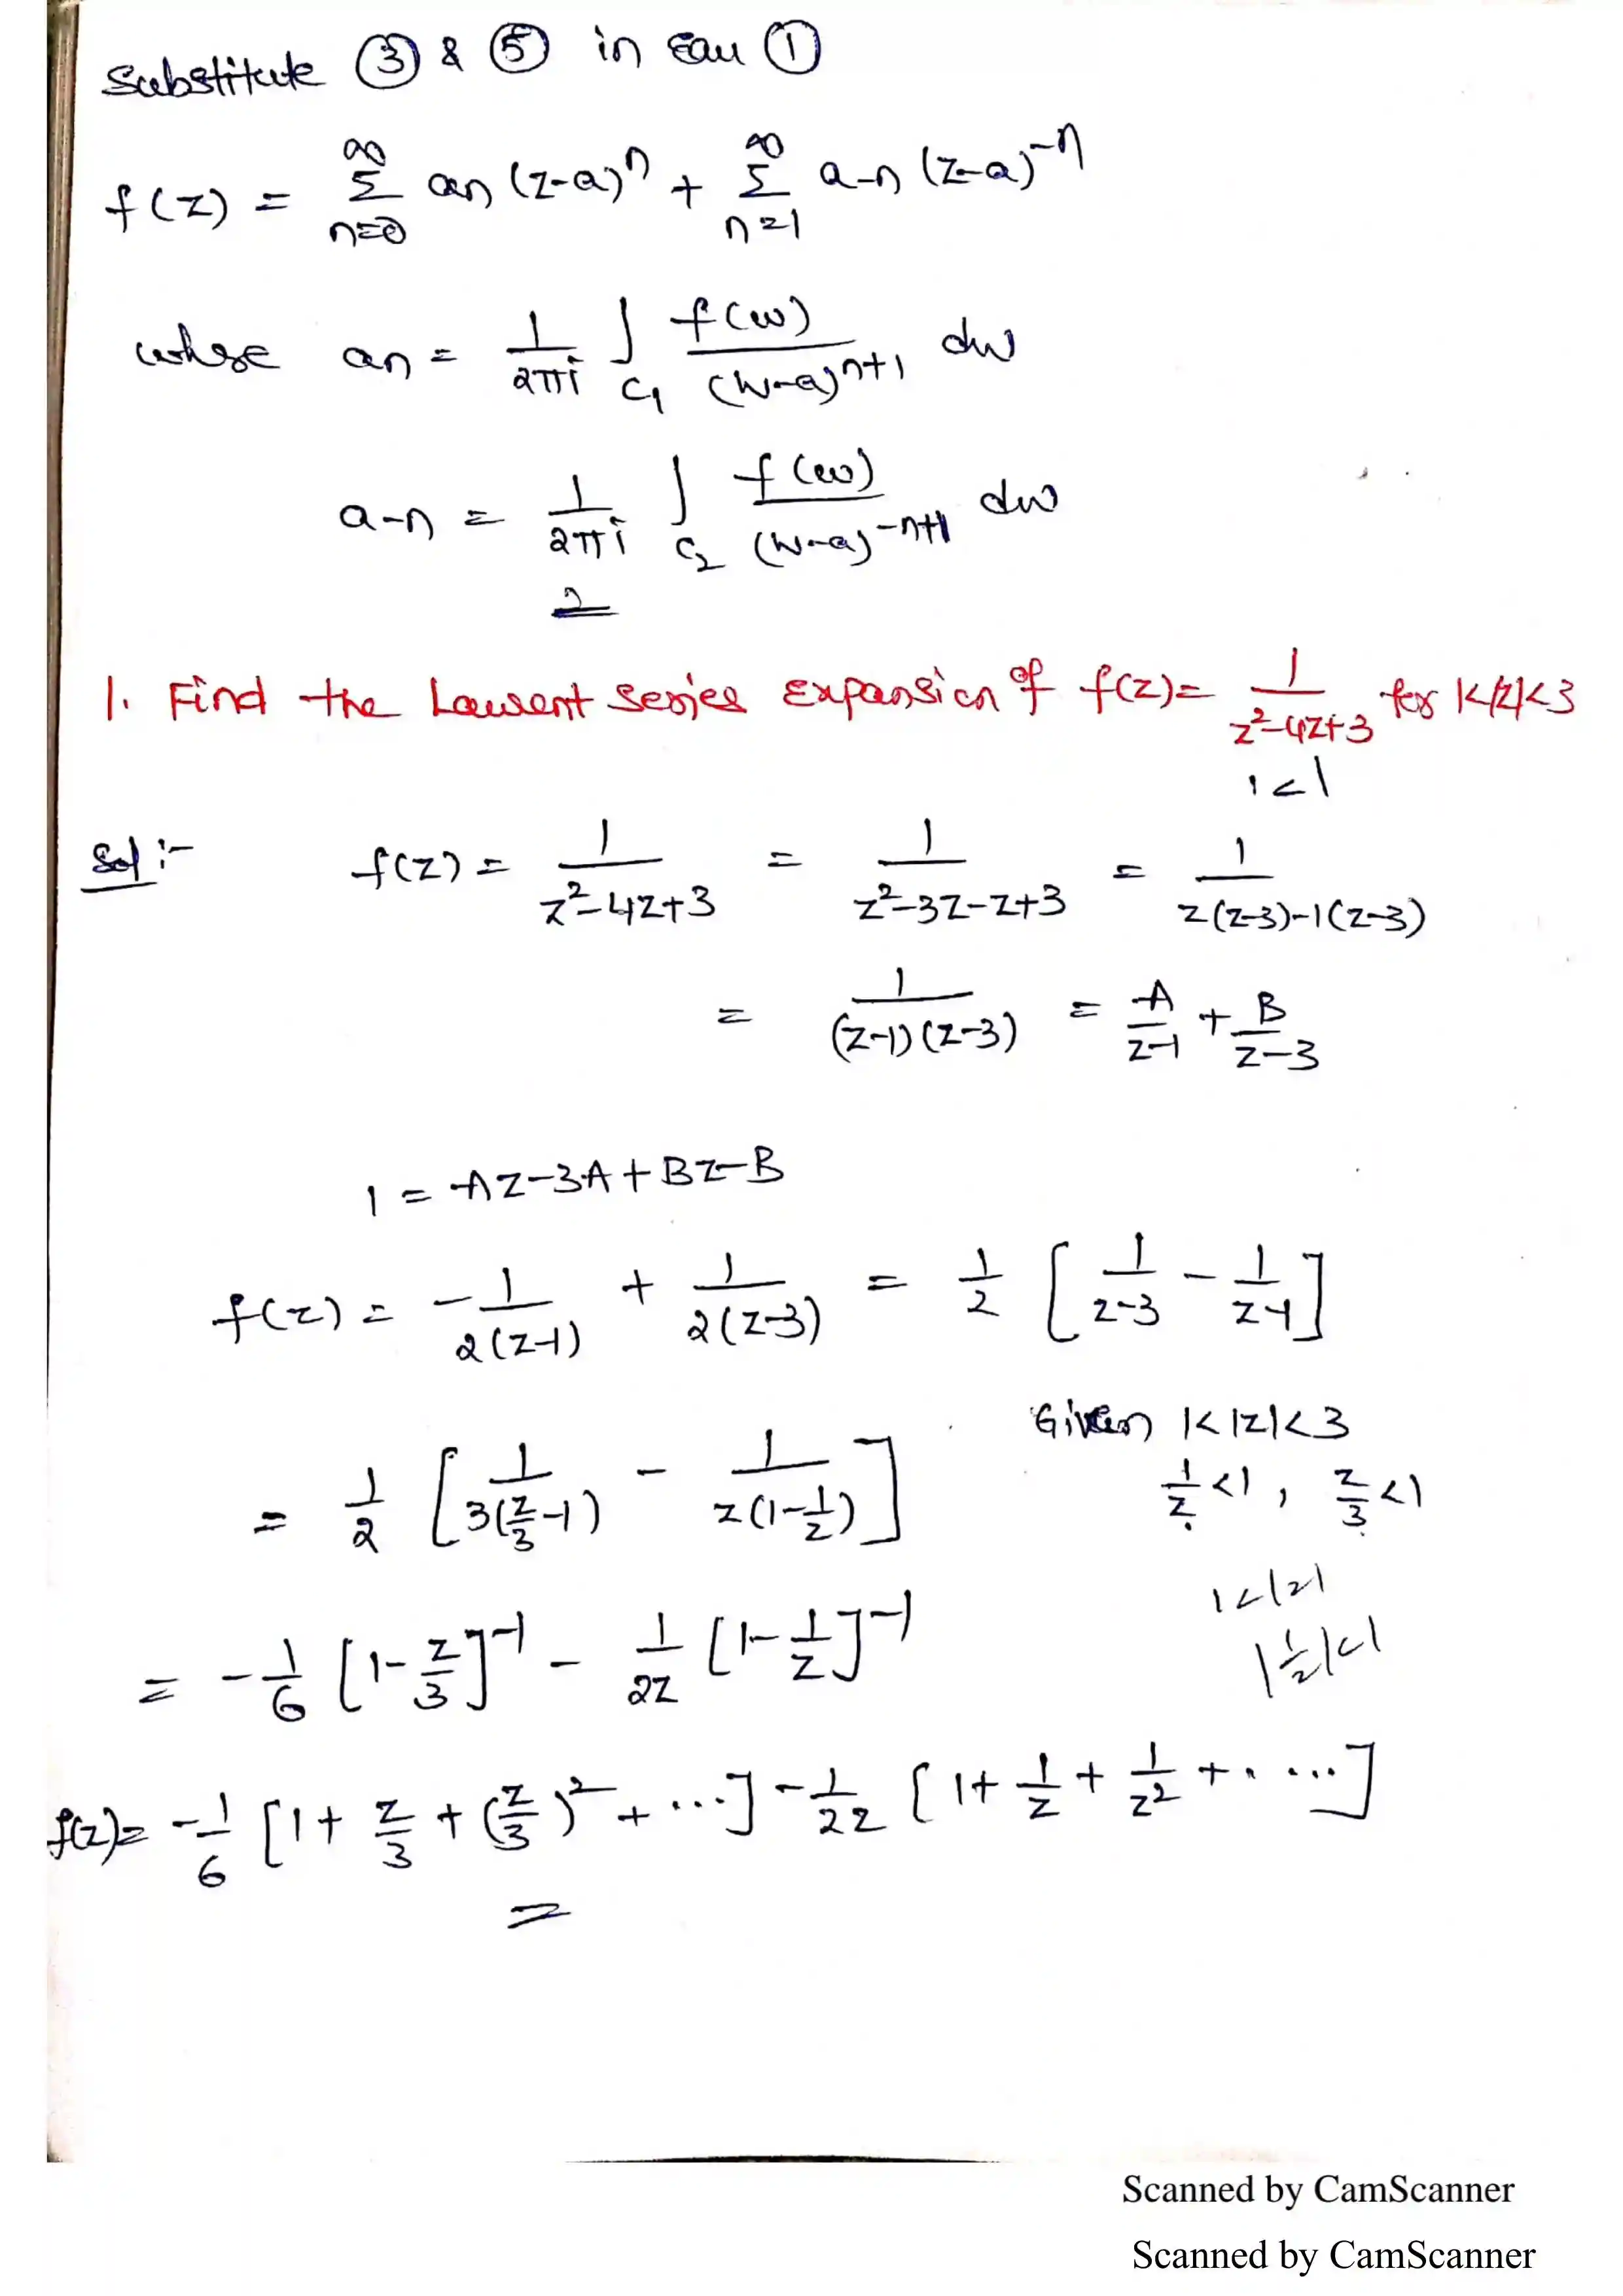 Substitute ③ & ⑤ in Equ ①
f(z) = ∞Σn=0 an (z-a)^n + ∞Σn=1 a-n (z-a)^-n
where an = 1/2πi ∫C1 f(w)/(w-a)^n+1 dw
a-n = 1/2πi ∫C2 f(w)/(w-a)^-n+1 dw
1. Find the Laurent series Expansion of f(z)= 1/z²-4z+3 for 1<|z|<3
1<1
Sol :- f(z) = 1/z²-4z+3 = 1/z²-3z-z+3 = 1/z(z-3)-1(z-3)
= 1/(z-1)(z-3) = A/z-1 + B/z-3
1 = Az-3A+Bz-B
f(z) = -1/2(z-1) + 1/2(z-3) = 1/2 [1/z-3 - 1/z-1]
Given 1<|z|<3
= 1/2 [1/3(z/3-1) - 1/z(1-1/z)]
1/z<1, z/3<1
1<|z|
= -1/6 [1-z/3]^-1 - 1/2z [1-1/z]^-1
|1/z|<1
f(z)= -1/6 [1+ z/3 + (z/3)² + ...] - 1/2z [1+ 1/z + 1/z² + ....]
Scanned by CamScanner
Scanned by CamScanner